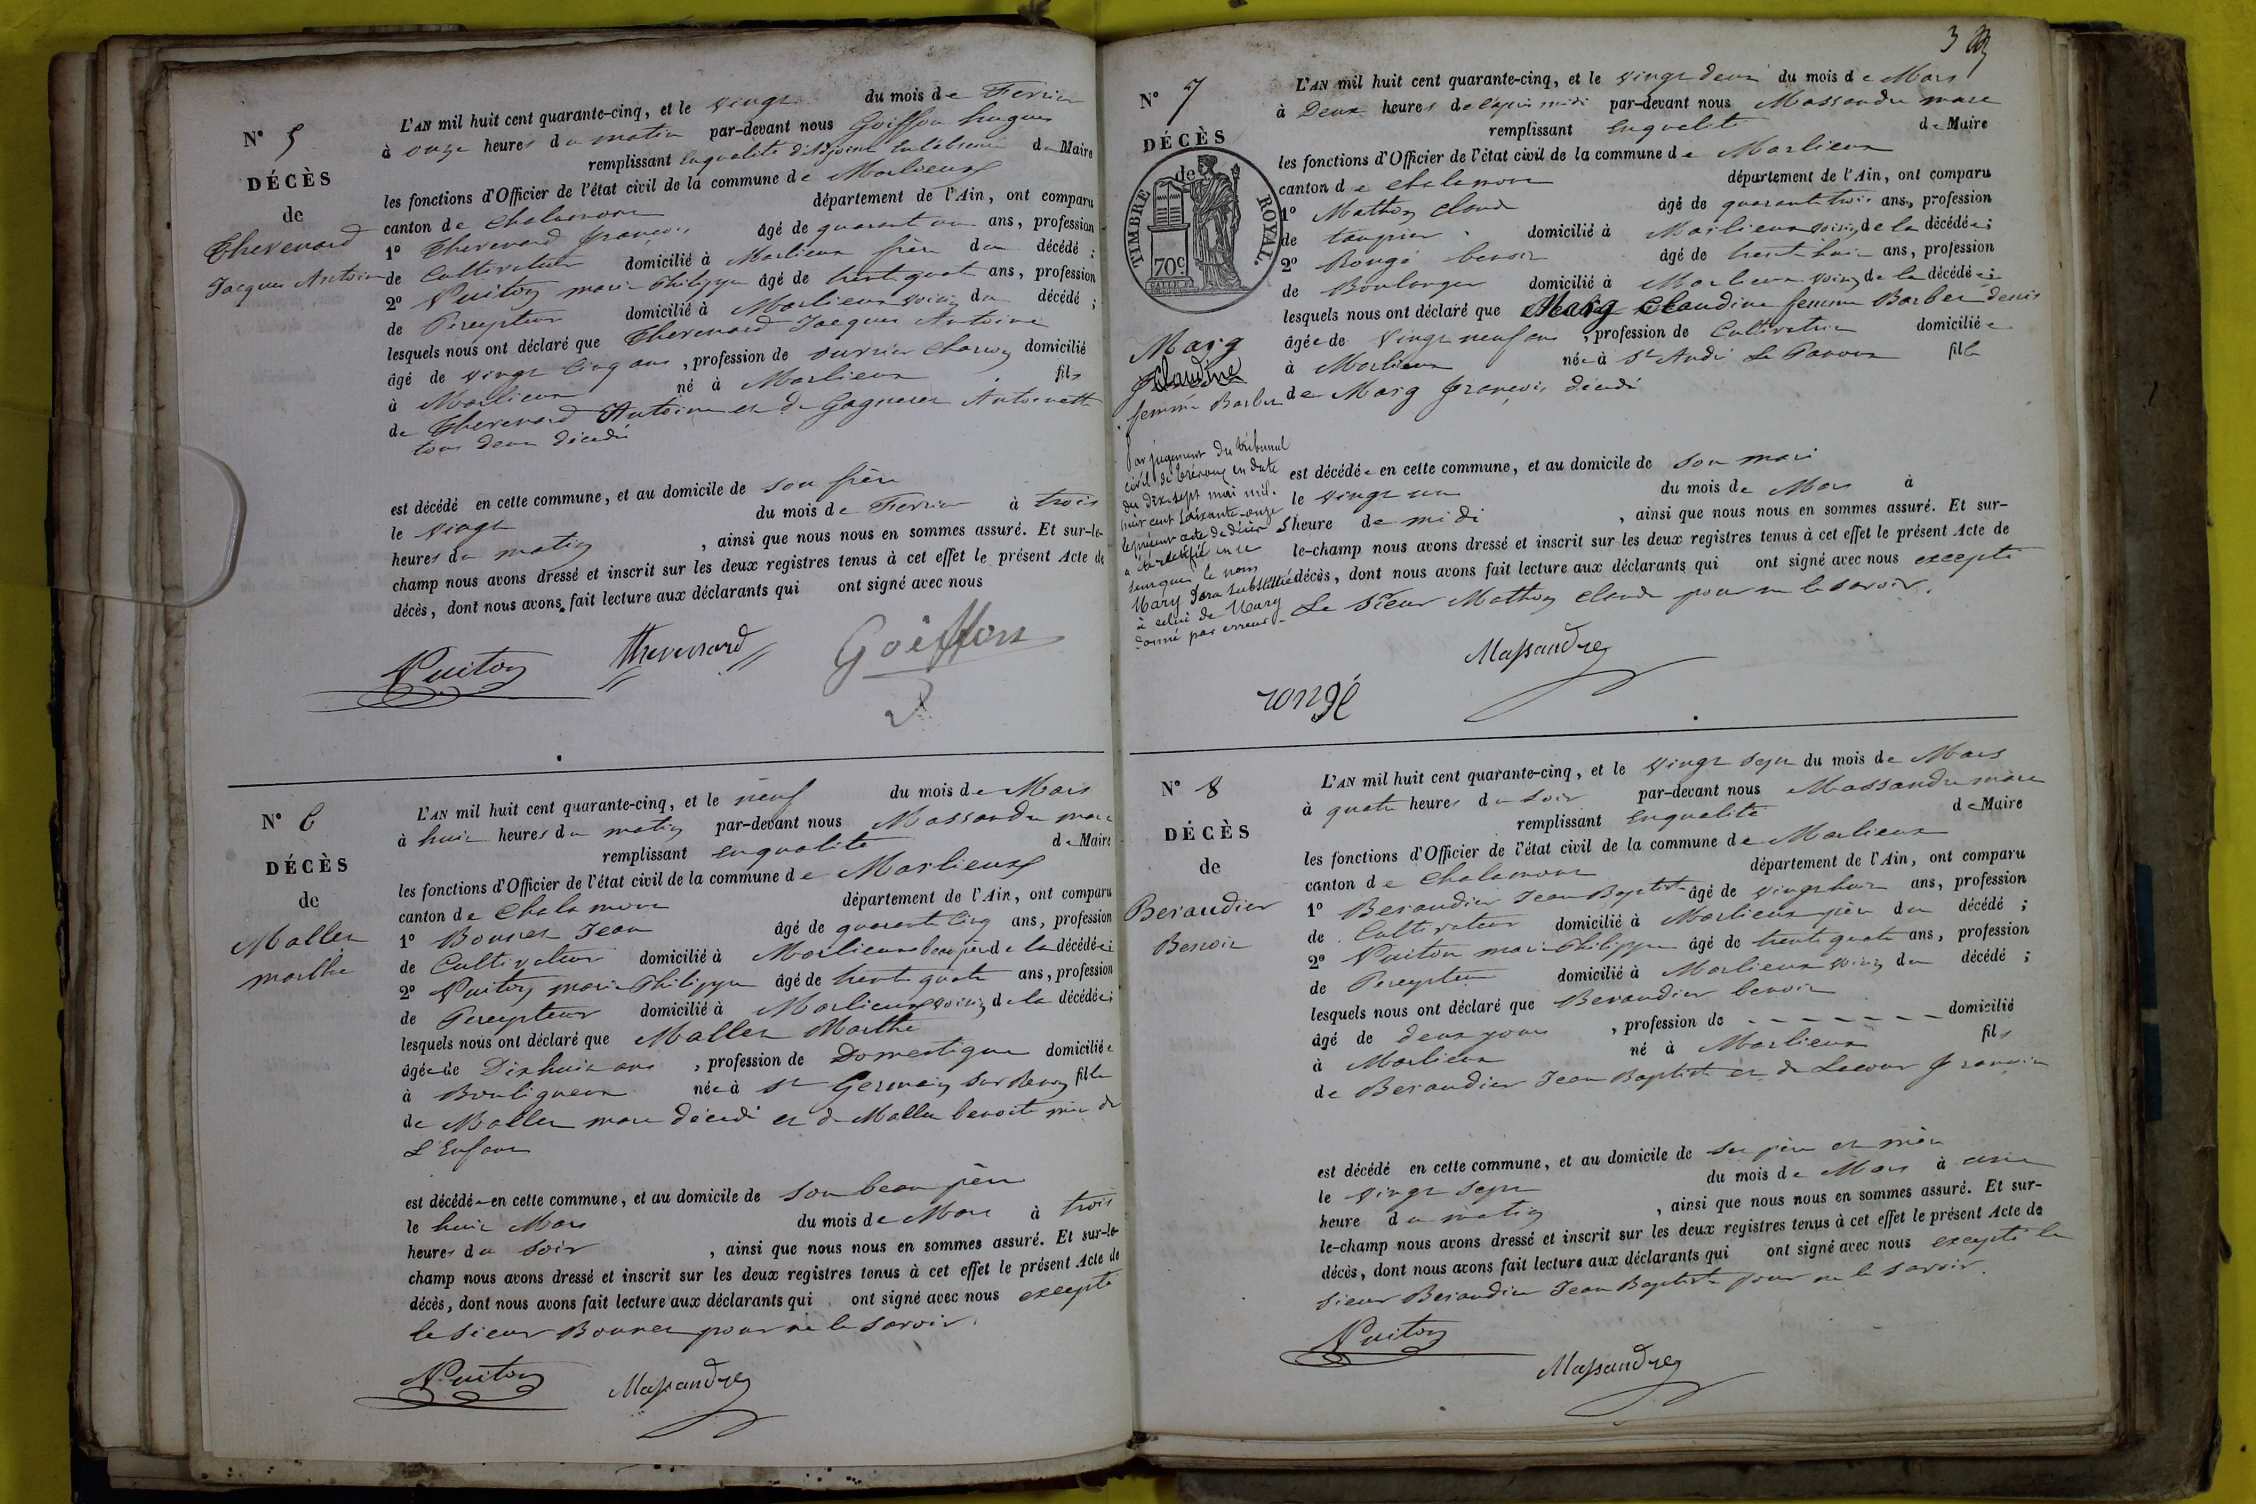 N° 5
DÉCÈS
de
Therenard
Jacques Antoine
L'AN mil huit cent quarante-cinq, et le vingt du mois de Fevrier
à onze heures du matin par-devant nous Goiffon hugues
remplissant enqualité d'adjoint en l'absence du Maire
les fonctions d'Officier de l'état civil de la commune de Marlieux
canton de Chalamont département de l'Ain, ont comparu
1° Therenard françois âgé de quarant ans, profession
de Cultivateur domicilié à Marlieux frère du décédé ;
2° Vuiton marie Philippe âgé de trente quatre ans, profession
de Percepteur domicilié à Marlieux voisin du décédé ;
lesquels nous ont déclaré que Therenard Jacques Antoine
âgé de vingt Cinq ans, profession de ouvrier Charon domicilié
à Marlieux né à Marlieux fils
de Therenard Antoine et de Antoinette
tous deux décédé
est décédé en cette commune, et au domicile de son frère
le vingt du mois de Fevrier à trois
heures du matin, ainsi que nous nous en sommes assuré. Et sur-le-
champ nous avons dressé et inscrit sur les deux registres tenus à cet effet le présent Acte de
décès, dont nous avons fait lecture aux déclarants qui ont signé avec nous
Vuiton Therenard Goiffon
N° 6
DÉCÈS
de
Mallet
marthe
L'AN mil huit cent quarante-cinq, et le neuf du mois de Mars
à huit heures du matin par-devant nous Massandre marc
remplissant enqualité de Maire
les fonctions d'Officier de l'état civil de la commune de Marlieux
canton de Chalamont département de l'Ain, ont comparu
1° Bonnet Jean âgé de quarante Cinq ans, profession
de Cultivateur domicilié à Marlieux beau père de la décédée ;
2° Vuiton marie Philippe âgé de trente quatre ans, profession
de Percepteur domicilié à Marlieux voisin de la décédée ;
lesquels nous ont déclaré que Mallet Marthe
âgée de Dix huit ans, profession de Domestique domiciliée
à Bouligneux née à St Germain sur Renon fille
de Mallet marc décédé et de Mallet benoite mère de
L'Enfant
est décédée en cette commune, et au domicile de son beau père
le huit Mars du mois de Mars à trois
heures du soir, ainsi que nous nous en sommes assuré. Et sur-le-
champ nous avons dressé et inscrit sur les deux registres tenus à cet effet le présent Acte de
décès, dont nous avons fait lecture aux déclarants qui ont signé avec nous excepté
le sieur Bonnet pour ne le savoir.
Vuiton Massandre
3
N° 7
DÉCÈS
de
TIMBRE ROYAL.
70c
Marg
Claudine
femme Barbet
Par jugement du tribunal
civil de Trévoux en date
du dix-sept mai mil-
huit cent soixante-onze
le présent acte de décès
a été rectifié en ce
sens que le nom
Mary sera substitué
à celui de Marg
donné par erreur.
L'AN mil huit cent quarante-cinq, et le vingt deux du mois de Mars
à Deux heures de l'après midi par-devant nous Massandre marc
remplissant Enqualité de Maire
les fonctions d'Officier de l'état civil de la commune de Marlieux
canton de Chalamont département de l'Ain, ont comparu
1° Mathon Claude âgé de quarante trois ans, profession
de taupier domicilié à Marlieux voisin de la décédée ;
2° Rongé benoit âgé de trente huit ans, profession
de Boulanger domicilié à Marlieux voisin de la décédée ;
lesquels nous ont déclaré que Marg Claudine femme Barbet denis
âgée de vingt neuf ans, profession de Cultivatrice domiciliée
à Marlieux née à St André Le Panoux fille
de Marg françois décédé
est décédée en cette commune, et au domicile de son mari
le vingt un du mois de Mars à
heure de midi, ainsi que nous nous en sommes assuré. Et sur-
le-champ nous avons dressé et inscrit sur les deux registres tenus à cet effet le présent Acte de
décès, dont nous avons fait lecture aux déclarants qui ont signé avec nous excepté
Le Sieur Mathon Claude pour ne le savoir.
Massandre
rongé
N° 8
DÉCÈS
de
Beraudier
Benoit
L'AN mil huit cent quarante-cinq, et le vingt sept du mois de Mars
à quatre heures du soir par-devant nous Massandre marc
remplissant Enqualité de Maire
les fonctions d'Officier de l'état civil de la commune de Marlieux
canton de Chalamont département de l'Ain, ont comparu
1° Beraudier Jean Baptiste âgé de vingt huit ans, profession
de Cultivateur domicilié à Marlieux père du décédé ;
2° Vuiton marie Philippe âgé de trente quatre ans, profession
de Percepteur domicilié à Marlieux voisin du décédé ;
lesquels nous ont déclaré que Beraudier benoit
âgé de deux jours, profession de - - - - - - - domicilié
à Marlieux né à Marlieux fils
de Beraudier Jean Baptiste et de Lecour
est décédé en cette commune, et au domicile de ses père et mère
le vingt sept du mois de Mars à une
heure du matin, ainsi que nous nous en sommes assuré. Et sur-
le-champ nous avons dressé et inscrit sur les deux registres tenus à cet effet le présent Acte de
décès, dont nous avons fait lecture aux déclarants qui ont signé avec nous excepté le
sieur Beraudier Jean Baptiste pour ne le savoir.
Vuiton
Massandre